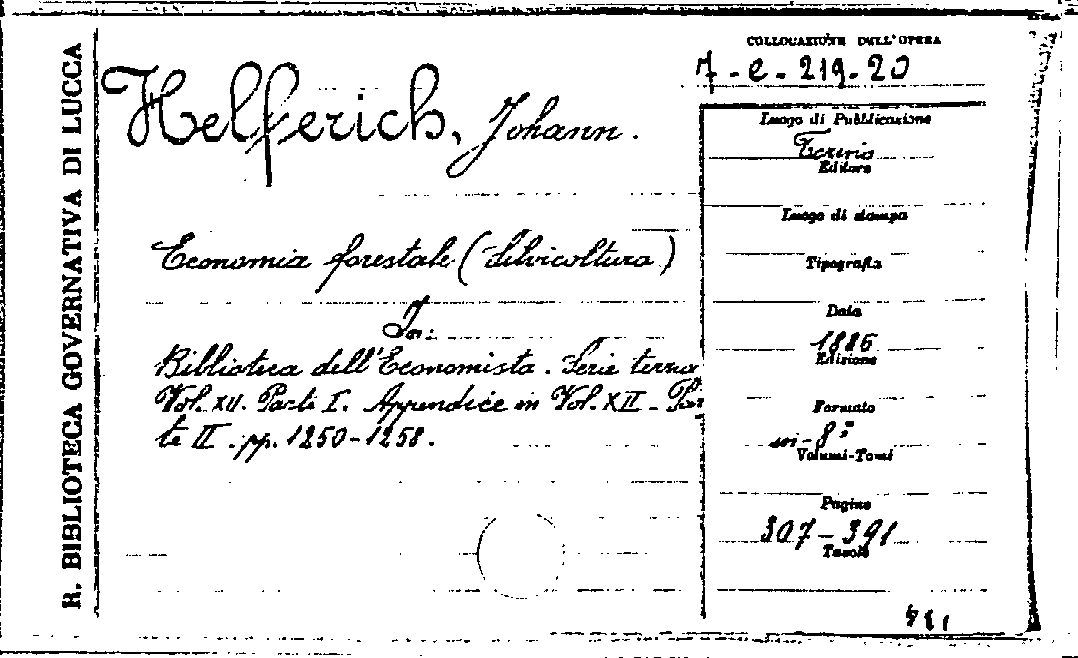 R. BIBLIOTECA GOVERNATIVA DI LUCCA
COLLOCAZIONE DELL'OPERA
7-e-219-20
Helferich, Johann.
Economia forestale (Silvicoltura)
In:
Biblioteca dell'Economista. Serie terza
Vol. XII. Parte I. Appendice in Vol. XII - Par
te II. pp. 1250-1258.
Luogo di Pubblicazione
Torino
Editore
Luogo di stampa
Tipografia
Data
1886
Edizione
Formato
in-8°
Volumi-Tomi
Pagine
307-391
Tavole